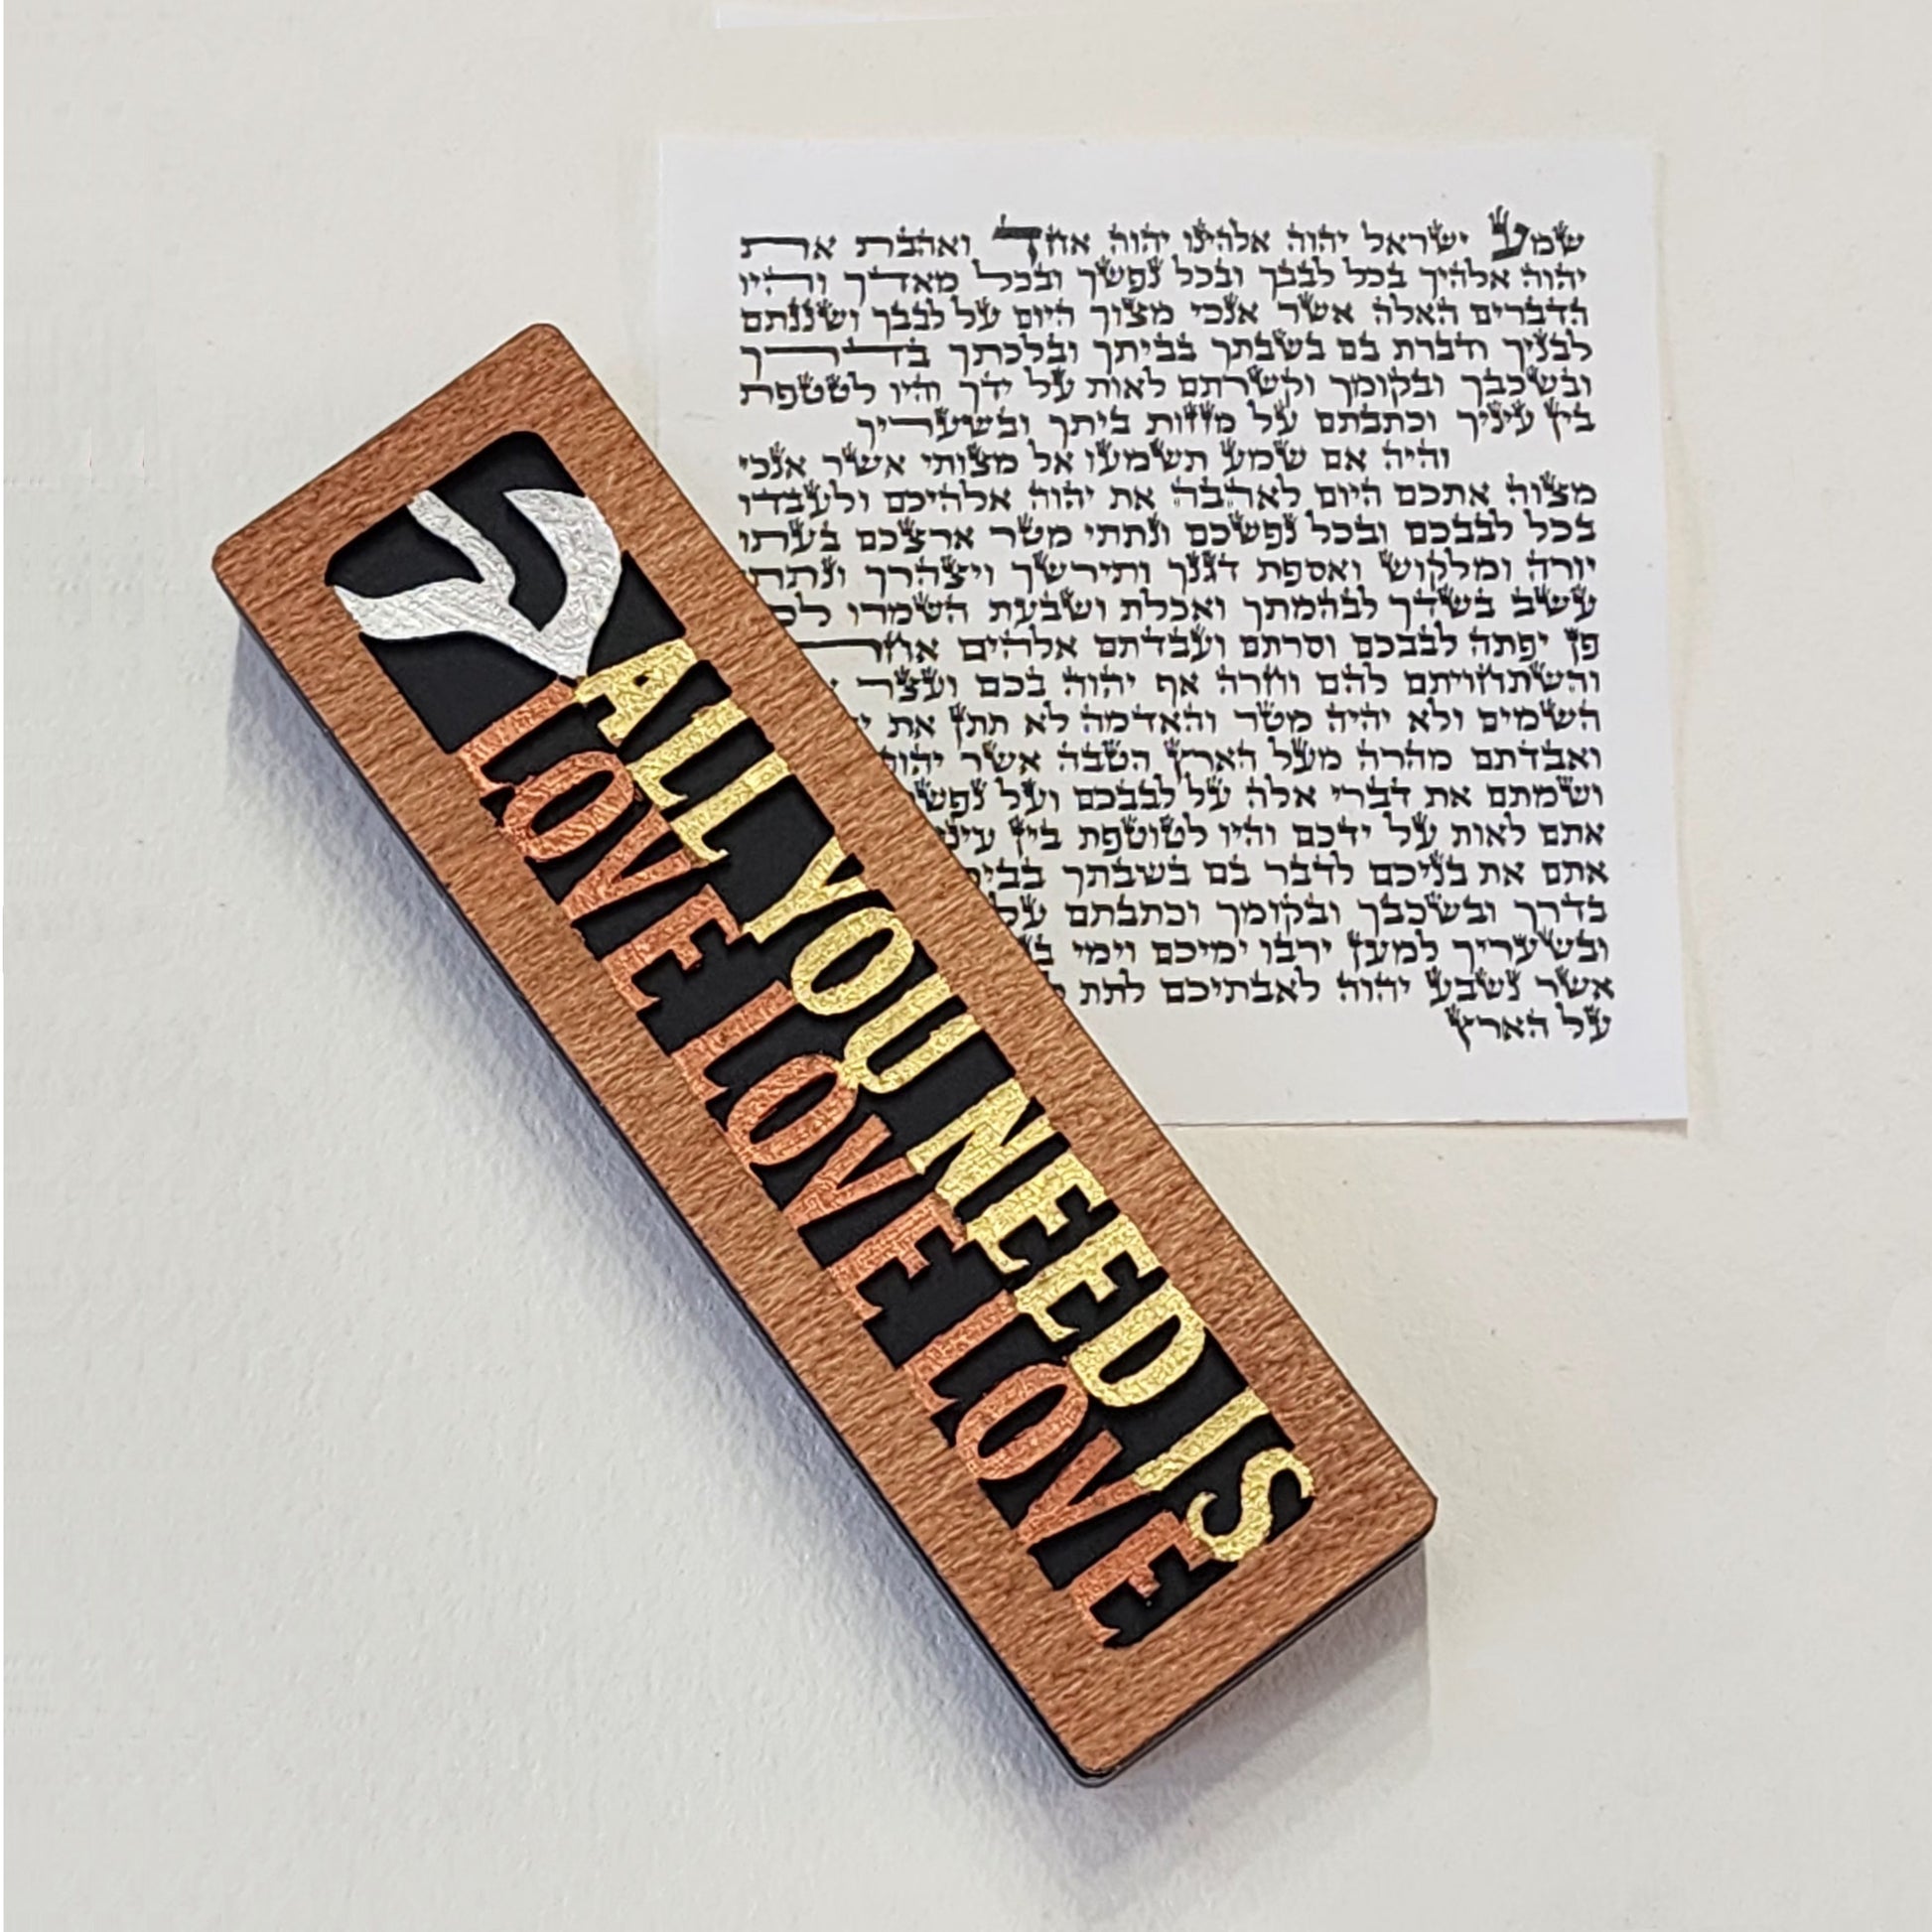 שמע ישראל יהוה אלהינו יהוה אחד ואהבת את
יהוה אלהיך בכל לבבך ובכל נפשך ובכל מאדך והיו
הדברים האלה אשר אנכי מצוך היום על לבבך ושננתם
לבניך ודברת בם בשבתך בביתך ובלכתך בדרך
ובשכבך ובקומך וקשרתם לאות על ידך והיו לטטפת
בין עיניך וכתבתם על מזזות ביתך ובשעריך
והיה אם שמע תשמעו אל מצותי אשר אנכי
מצוה אתכם היום לאהבה את יהוה אלהיכם ולעבדו
בכל לבבכם ובכל נפשכם ונתתי מטר ארצכם בעתו
יורה ומלקוש ואספת דגנך ותירשך ויצהרך ונתתי
עשב בשדך לבהמתך ואכלת ושבעת השמרו לכם
פן יפתה לבבכם וסרתם ועבדתם אלהים
והשתחויתם להם וחרה אף יהוה בכם ועצר
השמים ולא יהיה מטר והאדמה לא תתן את
ואבדתם מהרה מעל הארץ הטבה אשר יהוה
ושמתם את דברי אלה על לבבכם ועל
אתם לאות על ידכם והיו לטוטפת בין
אתם את בניכם לדבר בם בשבתך
בדרך ובשכבך ובקומך וכתבתם על
ובשעריך למען ירבו ימיכם וימי
אשר נשבע יהוה לאבתיכם לתת
על הארץ
ש
ALL YOU NEED IS
LOVE LOVE LOVE